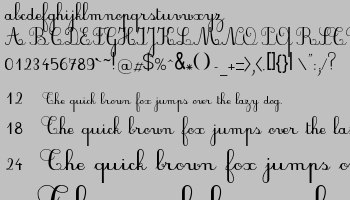 abcdefghijklmnopqrstuvwxyz
A B C D E F G H I J K L M N O P Q R S T
0123456789
12 The quick brown fox jumps over the lazy dog.
18 The quick brown fox jumps over the la
24 The quick brown fox jumps o